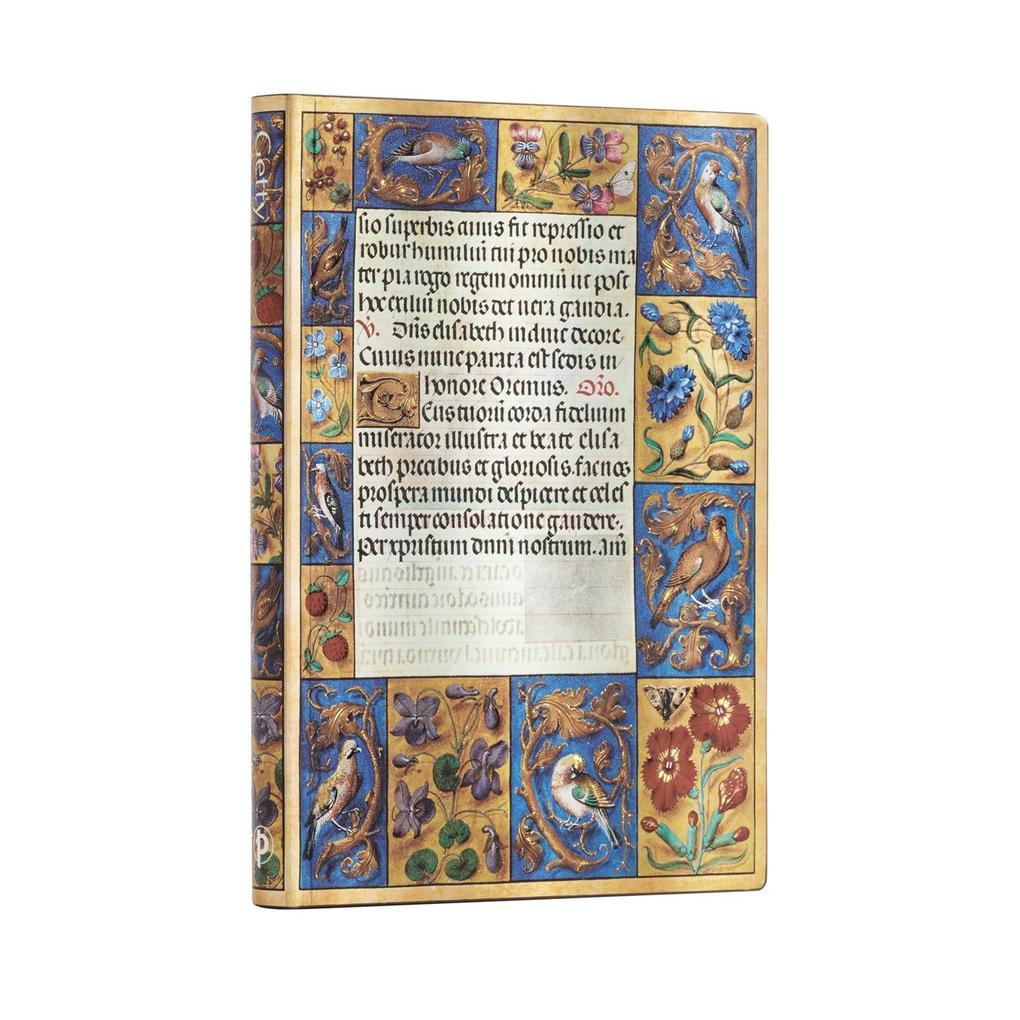 Getty
sio superbis cuius fit repressio et
robur humiliū cui pro nobis ma
ter pia rogo regem omniū ut post
hoc exiliū nobis det uera gaudia.
V. elisabeth decore
Cuius nunc parata est sedis in
honore Oremus. Oro.
Deus tuorū corda fidelium
miserator illustra et beate elisa
beth precibus et gloriosis. fac nos
prospera mundi despicere et celes
ti semper consolatione gaudere.
Per xpristum dnm̄ nostrum. am̄